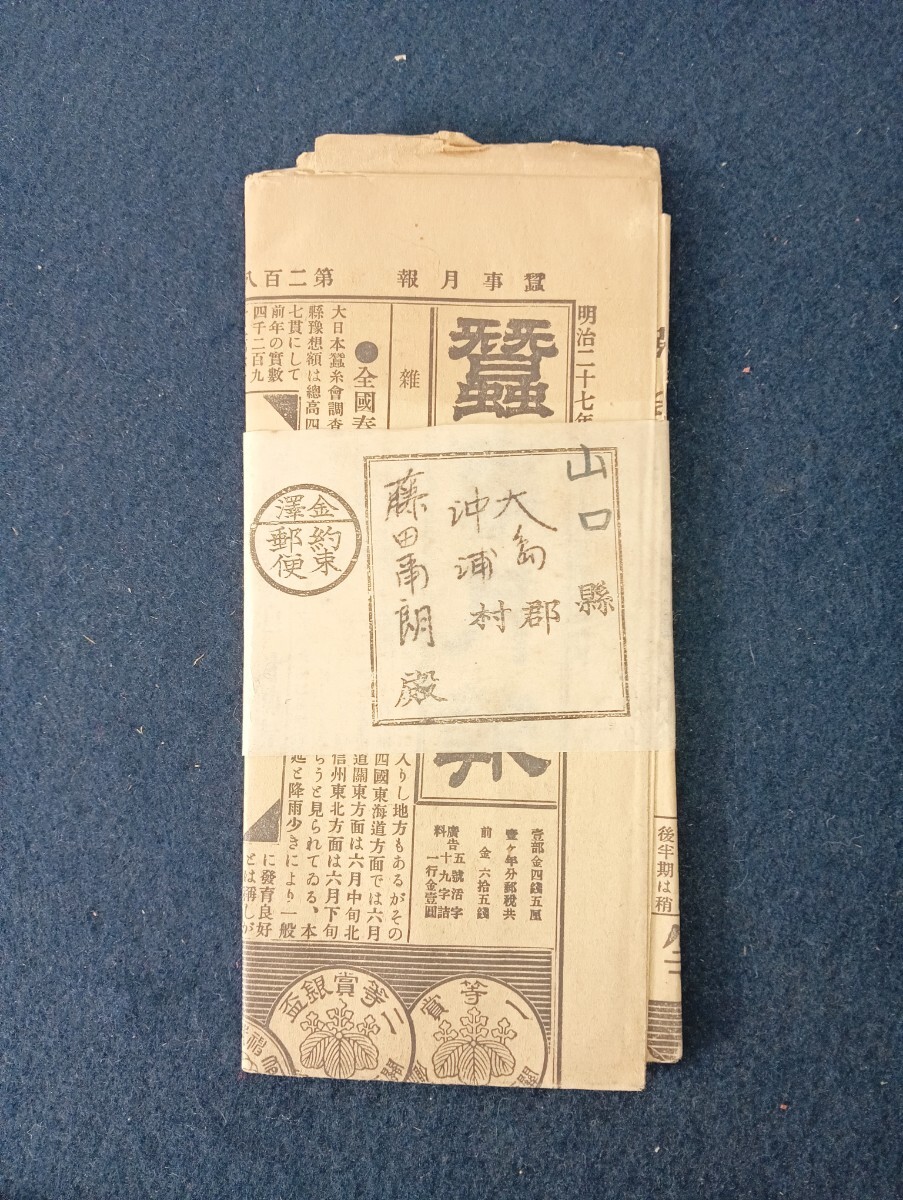 蠶事月報
第二百八
明治二十七年
蠶
雜
●全國春
大日本蠶糸會調査
縣豫想額は總高四
七貫にして
前年の實數
四千二百九
山口縣
大島郡
沖浦村
藤田甬朗殿
金澤
約束
郵便
壹部金四錢五厘
壹ヶ年分郵稅共
前金六拾五錢
廣告料五號活字
十九字詰
一行金壹圓
入りし地方もあるがその
四國東海道方面では六月
道關東方面は六月中旬北
信州東北方面は六月下旬
らうと見られてゐる、本
延と降雨少きにより一般
に發育良好
とは稱しが
後半期は稍
一等賞
二等賞銀盃